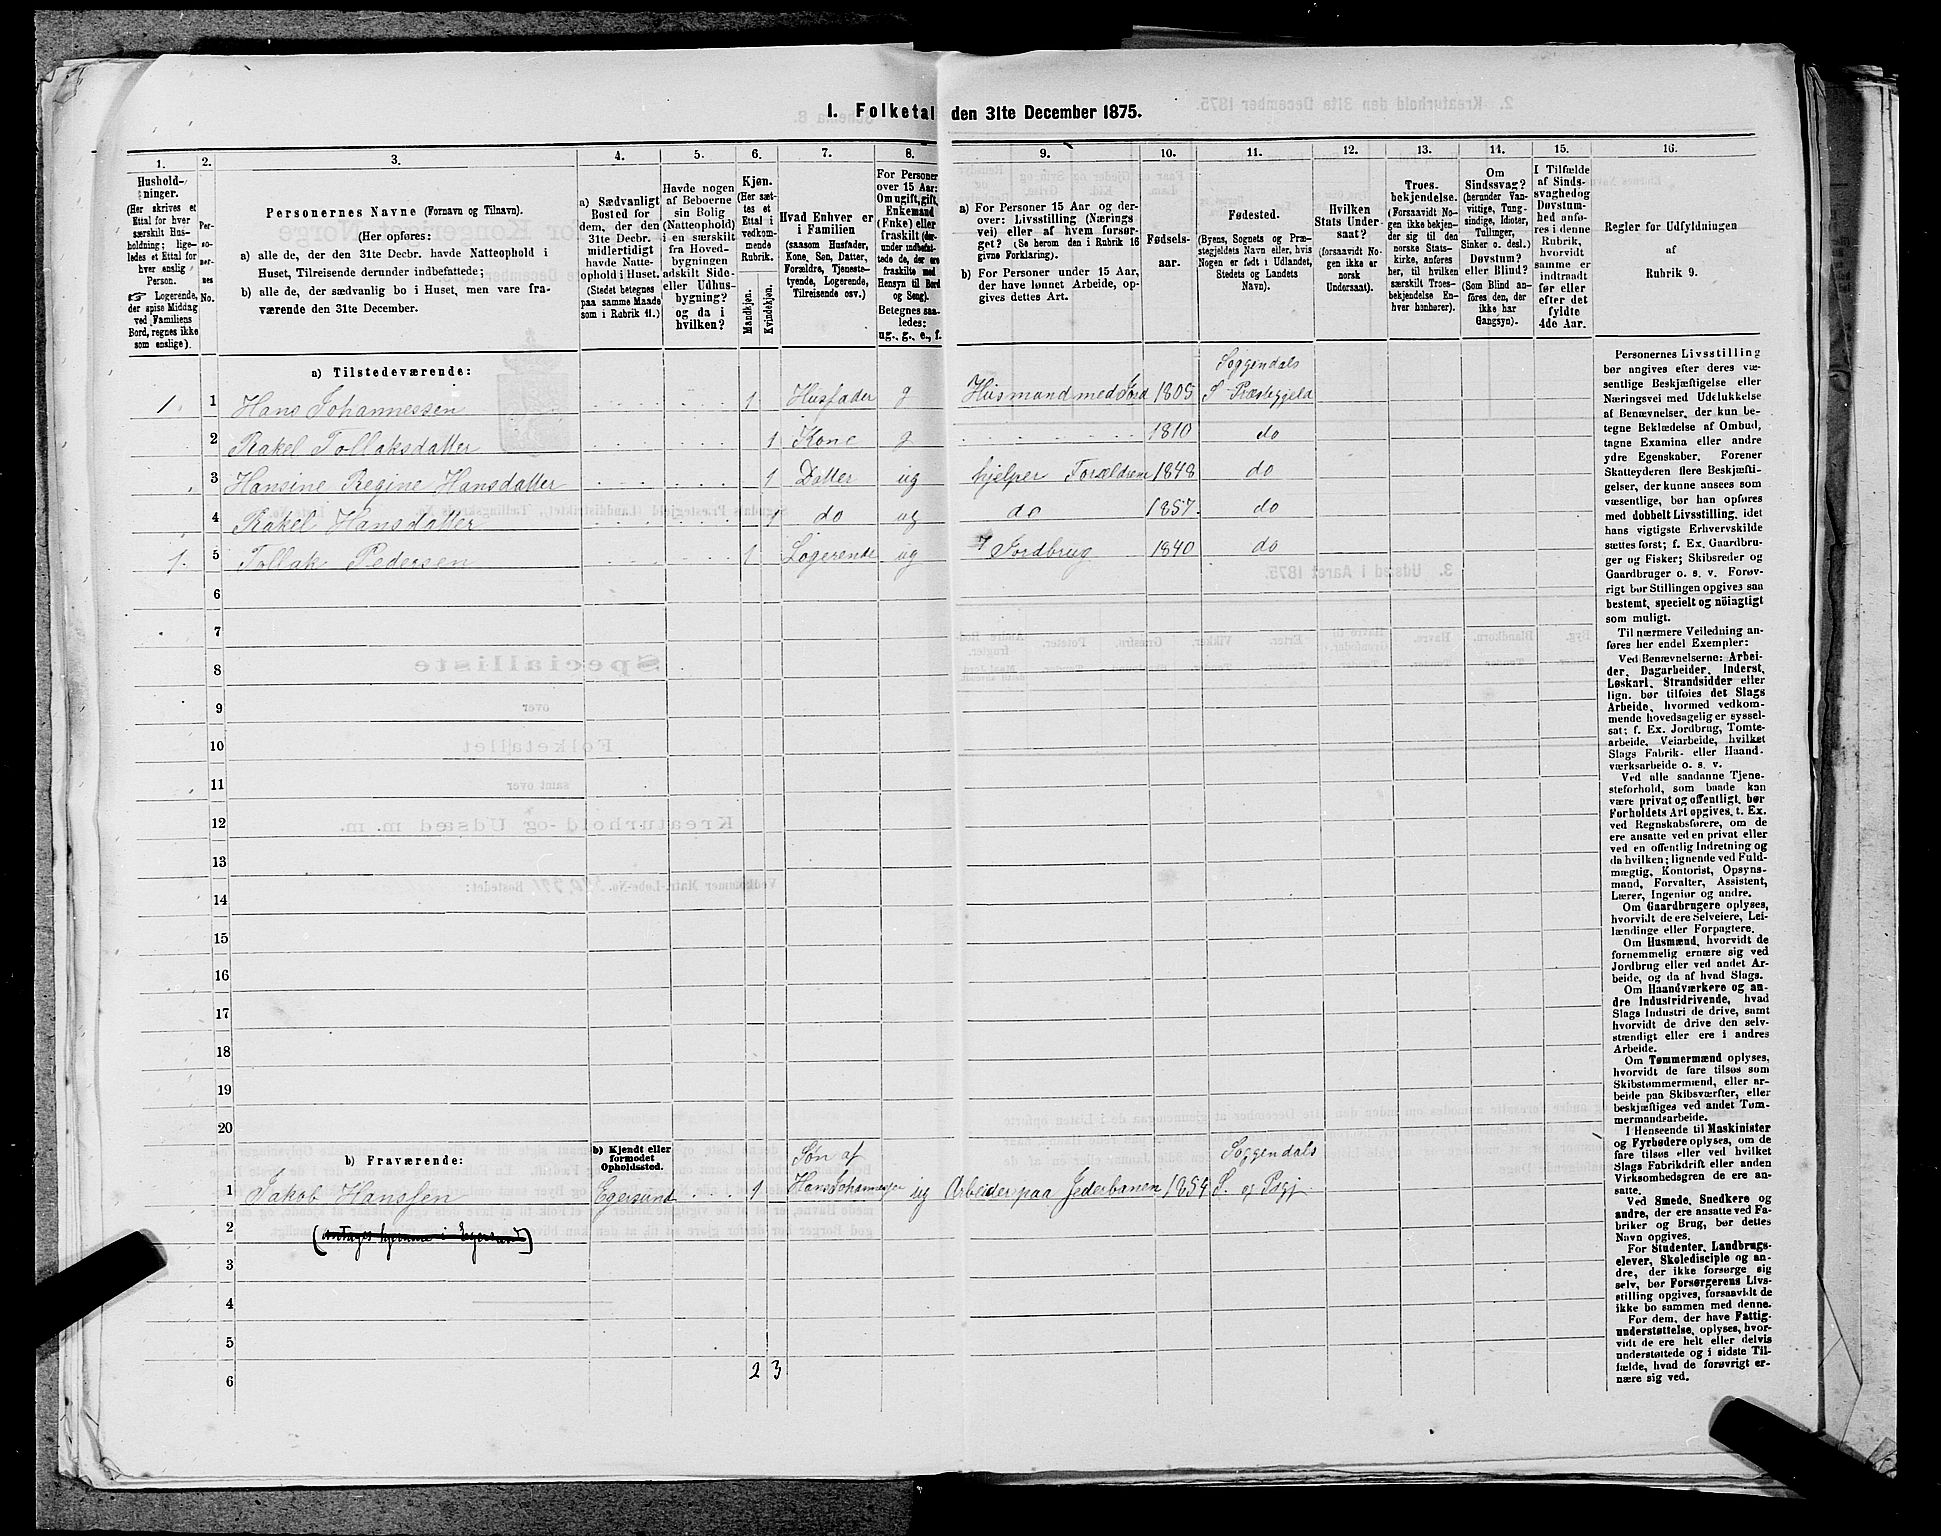 I. Folketal den 31te December 1875.
1. 2. 3. 4. 5. 6. 7. 8. 9. 10. 11. 12. 13. 14. 15. 16.
Hushold-
ninger.
(Her skrives et
Ettal for hver
særskilt Hus-
holdning; lige-
ledes et Ettal for
hver enslig
Person.
☞ Logerende,
der spise Middag
ved Familiens
Bord, regnes ikke
som enslige).
Per-
so-
ner-
nes
No.
Personernes Navne (Fornavn og Tilnavn).
(Her opføres:
a) alle de, der den 31te Decbr. havde Natteophold i
Huset, Tilreisende derunder indbefattede;
b) alle de, der sædvanlig bo i Huset, men vare fra-
værende den 31te December.
a) Sædvanligt
Bosted for
dem, der den
31te Decbr.
midlertidigt
havde Natte-
ophold i Huset.
(Stedet betegnes
paa samme Maade
som i Rubrik 11.)
Havde nogen
af Beboerne
sin Bolig
(Natteophold)
i en særskilt
fra Hoved-
bygningen
adskilt Side-
eller Udhus-
bygning?
og da i
hvilken?
Kjøn.
(Her sæt-
tes et
Ettal i
vedkom-
mende
Rubrik.
Mandkjøn.
Kvindekjøn.
Hvad Enhver er
i Familien
(saasom Husfader,
Kone, Søn, Datter,
Forældre, Tjeneste-
tyende, Logerende,
Tilreisende osv.)
For Personer
over 15 Aar:
Om ugift, gift,
Enkemand
(Enke) eller
fraskilt (der-
under indbefat-
tede de, der ere
fraskilte med
Hensyn til Bord
og Seng).
Betegnes saa-
ledes:
ug., g., e., f.
a) For Personer 15 Aar og der-
over: Livsstilling (Nærings
vei) eller af hvem forsør-
get? (Se herom den i Rubrik 16
givne Forklaring).
b) For Personer under 15 Aar,
der have lønnet Arbeide, op-
gives dettes Art.
Fødsels-
aar.
Fødested.
(Byens, Sognets og Præ-
stegjeldets Navn eller, hvis
Nogen er født i Udlandet,
Stedets og Landets
Navn).
Hvilken
Stats Under-
saat?
(forsaavidt No-
gen ikke er
norsk
Undersaat).
Troes-
bekjendelse.
(Forsaavidt No-
gen ikke bekjen-
der sig til den
norske Stats-
kirke, anføres
her, til hvilken
særskilt Troes-
bekjendelse En-
hver henhører).
Om
Sindssvag?
(herunder Van-
vittige, Tung-
sindige, Idioter,
Tullinger,
Sinker o. desl.)
Døvstum?
eller Blind?
(Som Blind an-
føres den, der
ikke har
Gangsyn).
I Tilfælde
af Sinds-
svaghed og
Døvstum-
hed anfø-
res i denne
Rubrik,
hvorvidt
samme er
indtraadt
før eller
efter det
fyldte
4de Aar.
Regler for Udfyldningen
af
Rubrik 9.
a) Tilstedeværende:
Soggendals
1. 1 Hans Johannessen 1 Husfader g Husmand med Jord 1805 S Præstegjeld
2 Rakel Tollaksdatter 1 Kone g 1810 do
3 Hansine Regine Hansdatter 1 Datter ug hjelper Forældrene 1848 do
4 Rakel Hansdatter 1 do ug do 1857 do
1. 5 Tollak Pedersen 1 Logerende ug Jordbrug 1840 do
6
7
8
9
10
11
12
13
14
15
16
17
18
19
20
b) Fraværende:
b) Kjendt eller
formodet
Opholdssted.
Søn af Soggendals
1 Jakob Hanssen Egersund 1 Hans Johannessen ug Arbeider paa Jederbanen 1854 S. og Pgj
2 (antages hjemme i Egersund)
3
4
5
6 2 3
Personernes Livsstilling
bør angives efter deres væ-
sentlige Beskjæftigelse eller
Næringsvei med Udelukkelse
af Benævnelser, der kun be-
tegne Beklædelse af Ombud,
tagne Examina eller andre
ydre Egenskaber. Forener
Skatteyderen flere Beskjæfti-
gelser, der kunne ansees som
væsentlige, bør han opføres
med dobbelt Livsstilling, idet
hans vigtigste Erhvervskilde
sættes først; f. Ex. Gaardbru-
ger og Fisker; Skibsreder og
Gaardbruger o. s. v. Forøv-
rigt bør Stillingen opgives saa
bestemt, specielt og nøiagtigt
som muligt.
Til nærmere Veiledning an-
føres her endel Exempler:
Ved Benævnelserne: Arbei-
der, Dagarbeider, Inderst,
Løskarl, Strandsidder eller
lign. bør tilføies det Slags
Arbeide, hvormed vedkom-
mende hovedsagelig er syssel-
sat; f. Ex. Jordbrug, Tomte-
arbeide, Veiarbeide, hvilket
Slags Fabrik- eller Haand-
værksarbeide o. s. v.
Ved alle saadanne Tjene-
steforhold, som baade kan
være privat og offentligt, bør
Forholdets Art opgives, t. Ex.
ved Regnskabsførere, om de
ere ansatte ved en privat eller
ved en offentlig Indretning og
da hvilken; lignende ved Fuld-
mægtig, Kontorist, Opsyns-
mand, Forvalter, Assistent,
Lærer, Ingeniør og andre.
Om Gaardbrugere oplyses,
hvorvidt de ere Selveiere, Lei-
lændinge eller Forpagtere.
Om Husmænd, hvorvidt de
fornemmelig ernære sig ved
Jordbrug eller ved andet Ar-
beide, og da af hvad Slags.
Om Haandværkere og an-
dre Industridrivende, hvad
Slags Industri de drive, samt
hvorvidt de drive den selv-
stændigt eller ere i andres
Arbeide.
Om Tømmermænd oplyses,
hvorvidt de fare tilsøs som
Skibstømmermænd, eller ar-
beide paa Skibsværfter, eller
beskjæftiges ved andet Tøm-
mermandsarbeide.
I Henseende til Maskinister
og Fyrbødere oplyses, om de
fare tilsøs eller ved hvilket
Slags Fabrikdrift eller anden
Virksomhedsgren de ere an-
satte.
Ved Smede, Snedkere og
andre, der ere ansatte ved Fa-
briker og Brug, bør dettes
Navn opgives.
For Studenter, Landbrugs-
elever, Skoledisciple og an-
dre, der ikke forsørge sig
selv, bør Forsørgerens Livs-
stilling opgives, forsaavidt de
ikke bo sammen med denne.
For dem, der have Fattig-
understøttelse, oplyses, hvor-
vidt de ere helt eller delvis
understøttede og i sidste Til-
fælde, hvad de forøvrigt er-
nære sig ved.